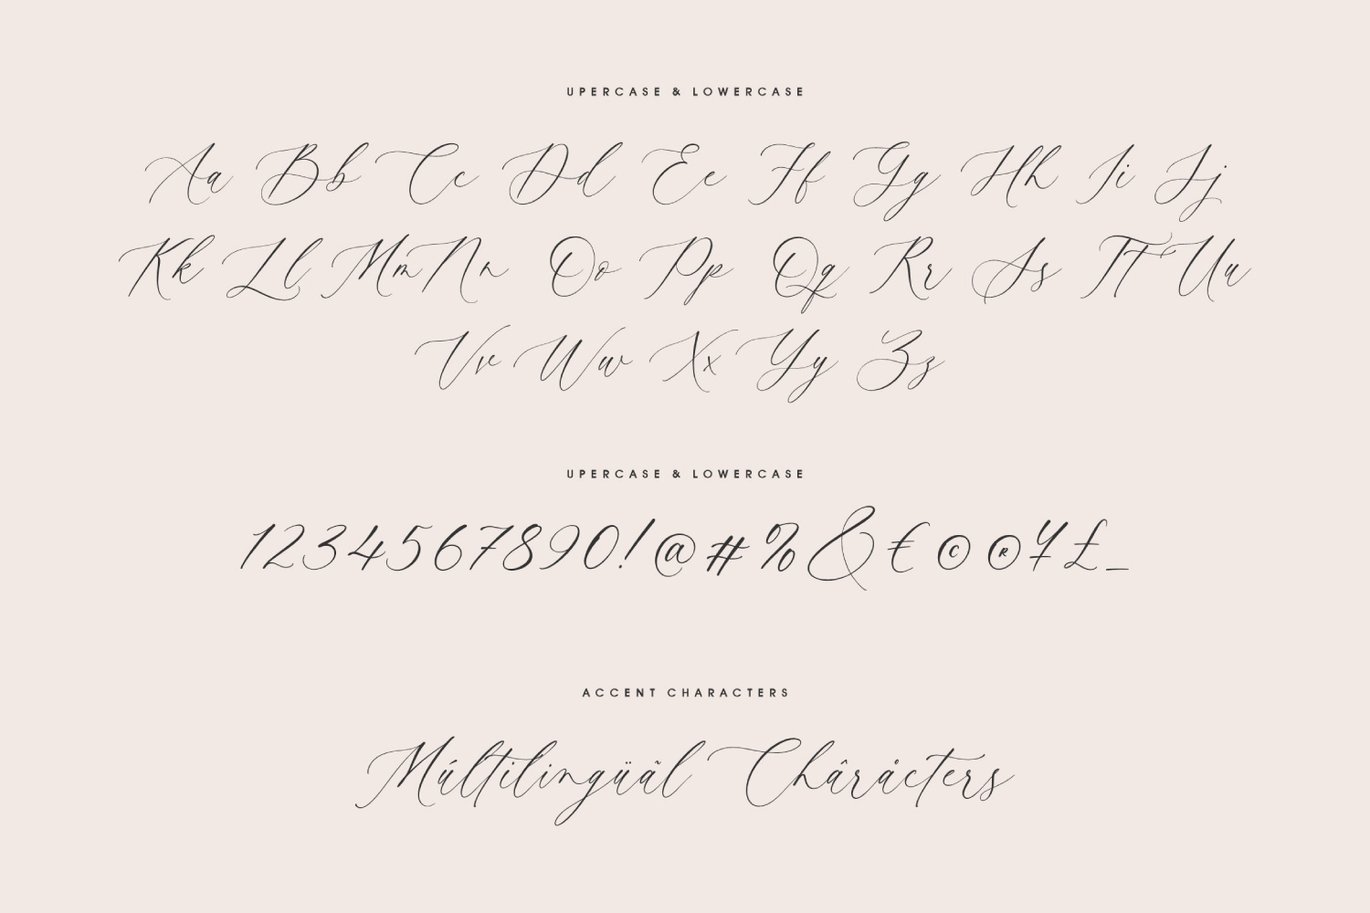 UPERCASE & LOWERCASE
Aa Bb Cc Dd Ee Ff Gg Hh Ii Jj
Kk Ll Mm Nn Oo Pp Qq Rr Ss Tt Uu
Vv Ww Xx Yy Zz
UPERCASE & LOWERCASE
1234567890!@#%&€©®¥£_
ACCENT CHARACTERS
Múltilingüãl Châråcters